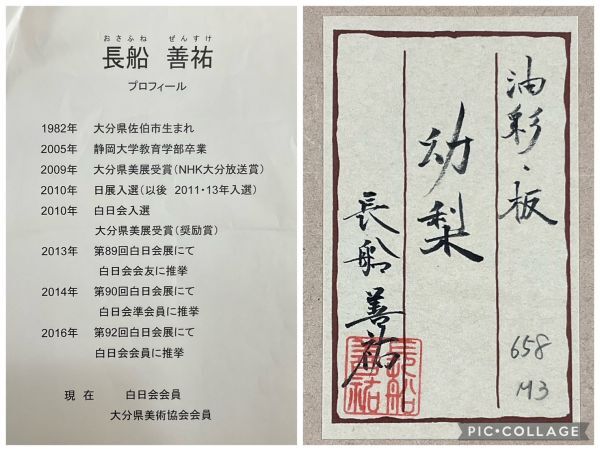 おさふね ぜんすけ
長船 善祐
プロフィール
1982年 大分県佐伯市生まれ
2005年 静岡大学教育学部卒業
2009年 大分県美展受賞（NHK大分放送賞）
2010年 日展入選（以後 2011・13年入選）
2010年 白日会入選
大分県美展受賞（奨励賞）
2013年 第89回白日会展にて
白日会会友に推挙
2014年 第90回白日会展にて
白日会準会員に推挙
2016年 第92回白日会展にて
白日会会員に推挙
現在 白日会会員
大分県美術協会会員
油彩・板
幼梨
長船善祐
長船
善祐
658
M3
PIC•COLLAGE